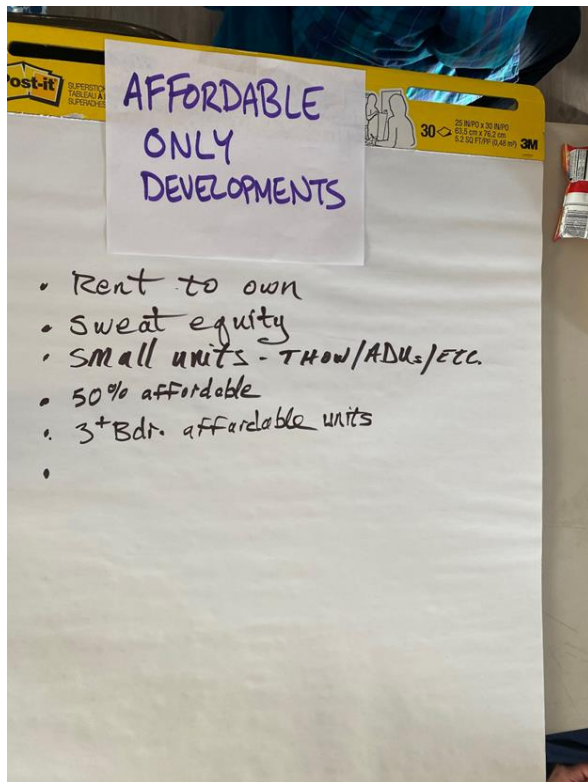 Post-it
SUPERSTICK
TABLEAU À
SUPERADHES
30
25 IN/PO x 30 IN/PO
63,5 cm x 76,2 cm
5.2 SQ FT/PP (0,48 m²)
3M
AFFORDABLE
ONLY
DEVELOPMENTS
• Rent to own
• Sweat equity
• Small units - THOW/ADUs/ETC.
• 50% affordable
• 3+ Bdr. affordable units
•